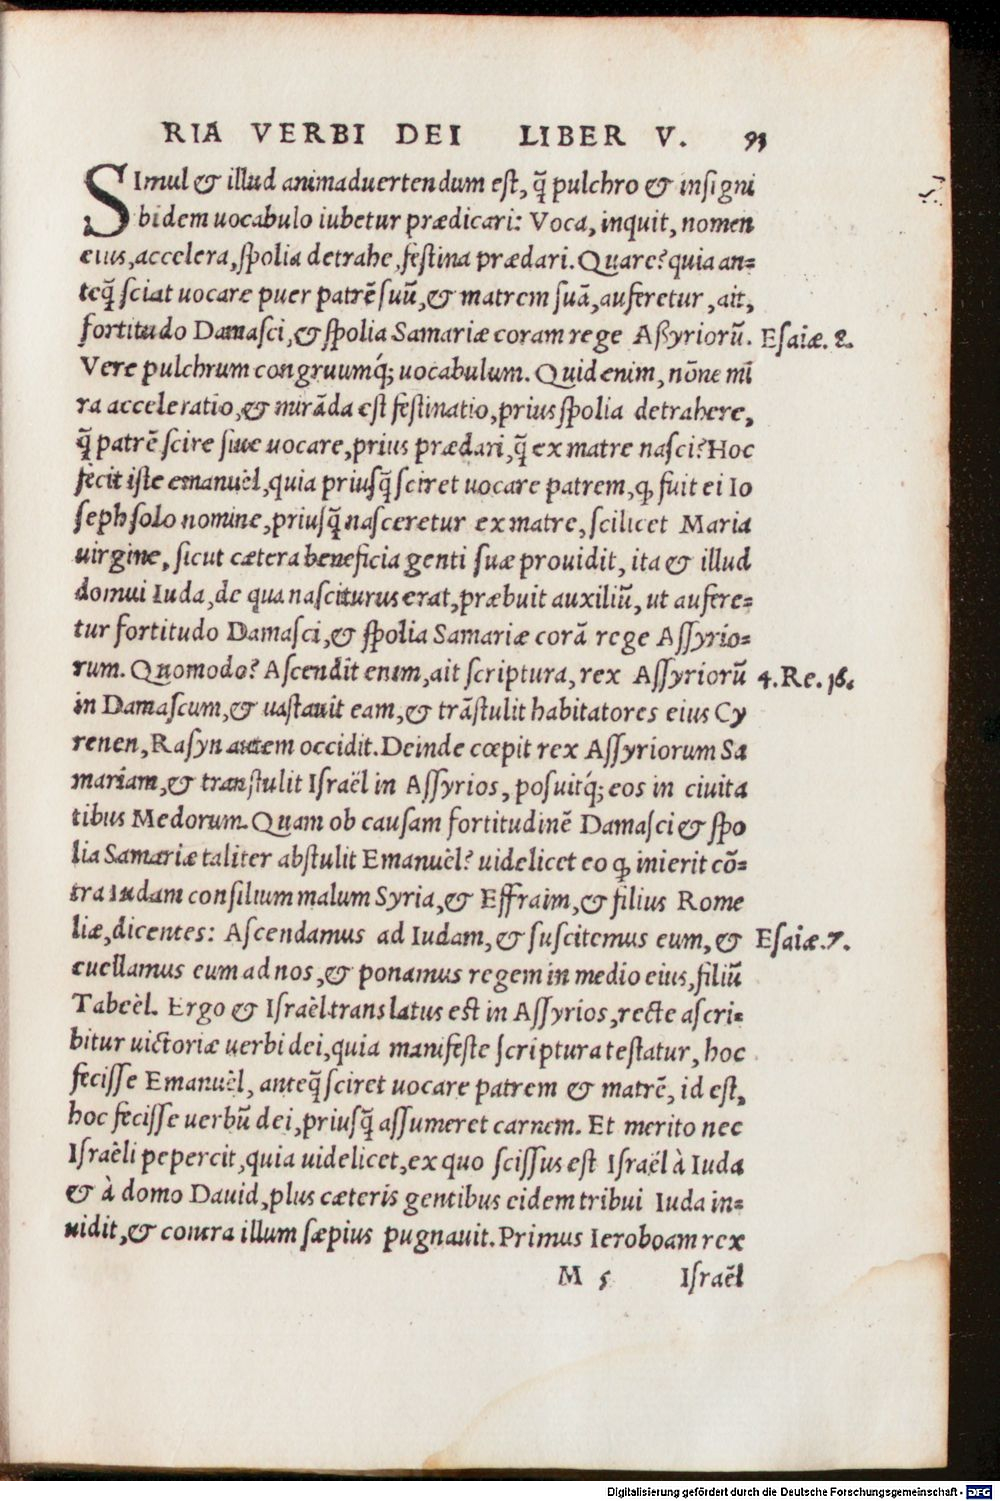 RIA VERBI DEI LIBER V. 93
SImul & illud animaduertendum est, q̃ pulchro & insigni
bidem uocabulo iubetur prædicari: Voca, inquit, nomen
eius, accelera, spolia detrahe, festina prædari. Quare? quia an=
teq̃ sciat uocare puer patrẽ suũ, & matrem suã, auferetur, ait,
fortitudo Damasci, & spolia Samariæ coram rege Aßyriorũ. Esaiæ. 8.
Vere pulchrum congruumq́; uocabulum. Quid enim, nõne mi
ra acceleratio, & mirãda est festinatio, prius spolia detrahere,
q̃ patrẽ scire siue uocare, prius prædari, q̃ ex matre nasci? Hoc
fecit iste emanuèl, quia priusq̃ sciret uocare patrem, ꝙ fuit ei Io
seph solo nomine, priusq̃ nasceretur ex matre, scilicet Maria
uirgine, sicut cætera beneficia genti suæ prouidit, ita & illud
domui Iuda, de qua nasciturus erat, præbuit auxiliũ, ut aufere=
tur fortitudo Damasci, & spolia Samariæ corã rege Assyrio=
rum. Quomodo? Ascendit enim, ait scriptura, rex Assyriorũ 4. Re. 16.
in Damascum, & uastauit eam, & trãstulit habitatores eius Cy
renen, Rasyn autem occidit. Deinde cœpit rex Assyriorum Sa
mariam, & transtulit Israël in Assyrios, posuitq́; eos in ciuita
tibus Medorum. Quam ob causam fortitudinẽ Damasci & spo
lia Samariæ taliter abstulit Emanuèl? uidelicet eo ꝙ inierit cõ=
tra Iudam consilium malum Syria, & Effraim, & filius Rome
liæ, dicentes: Ascendamus ad Iudam, & suscitemus eum, & Esaiæ. 7.
euellamus eum ad nos, & ponamus regem in medio eius, filiũ
Tabeèl. Ergo & Israèl translatus est in Assyrios, recte ascri=
bitur uictoriæ uerbi dei, quia manifeste scriptura testatur, hoc
fecisse Emanuèl, anteq̃ sciret uocare patrem & matrẽ, id est,
hoc fecisse uerbũ dei, priusq̃ assumeret carnem. Et merito nec
Israèli pepercit, quia uidelicet, ex quo scissus est Israël à Iuda
& à domo Dauid, plus cæteris gentibus eidem tribui Iuda in=
uidit, & contra illum sæpius pugnauit. Primus Ieroboam rex
M 5 Israël
Digitalisierung gefördert durch die Deutsche Forschungsgemeinschaft - DFG